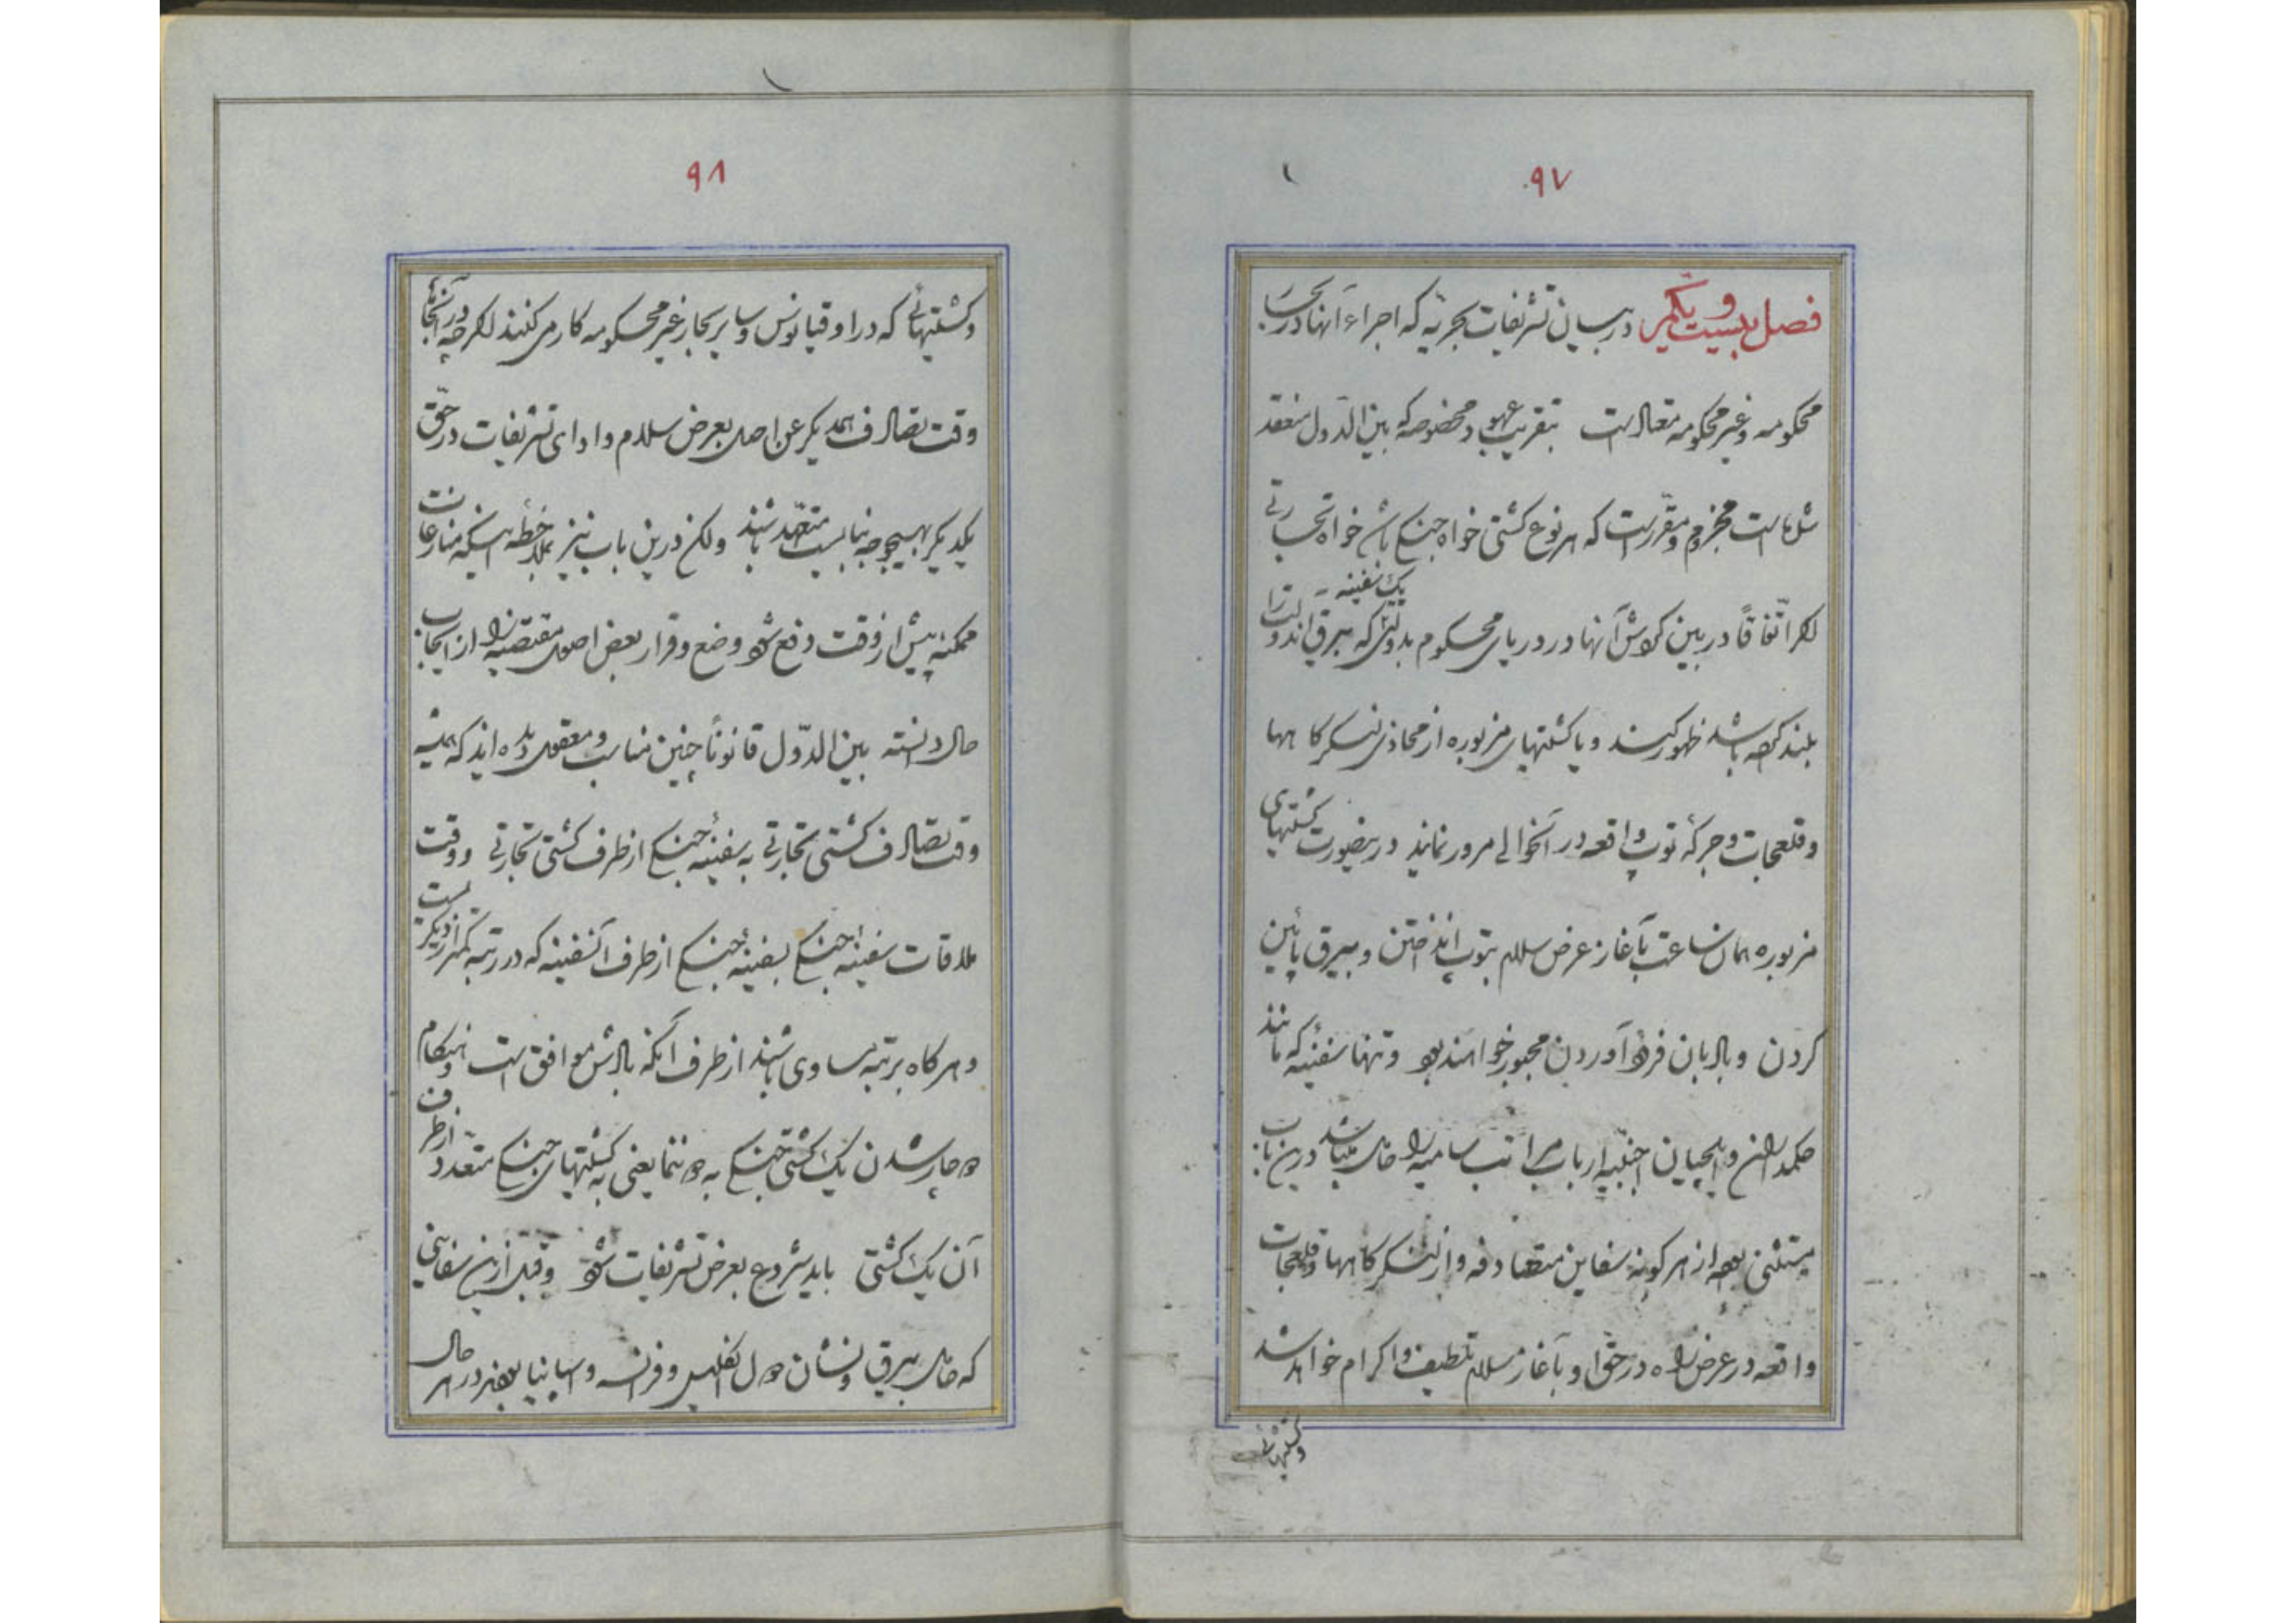 ۹۷
فصل بیست و یکم در بیان تشریفات بحریه که اجراء آنها در بحار
محکومه و غیر محکومه متعال است بتقریب عهود مخصوصه که بین الدول منعقد
شده است مجزوم و مقرر است که هر نوع کشتی خواه جنگی باشد خواه تجارتی
اگر اتفاقاً در بین کردش آنها در دریای محکوم بدولتی که بیرق اندولت را یک سفینه
بلند کرده باشد ظهور کند و یا کشتیهای مزبوره از محاذی لنکرکاهها
و قلعجات و جرکهٔ توپ واقعه در آنحوالی مرور نمایند درینصورت کشتیهای
مزبوره همان ساعت بآغاز عرض سلام بتوپ انداختن و بیرق پائین
کردن و یا البان فرود آوردن مجبور خواهند بود و تنها سفینهٔ که مانند
حکمداران و ایلچیان اجنبیه ارباب مراتب سامیه را حامل میباشد درین باب
مستثنی بوده از هر کونه سفاین متصادفه و از لنکرکاهها و قلعجات
واقعه در عرض راه در حق او بآغاز سلام تلطیف و اکرام خواهد شد
و کشتیهائی
۹۸
و کشتیهائی که در اوقیانوس و سایر بحار غیر محکومه کار می کنند اکرچه در آنجا
وقت تصادف همدیکر عن اصل بعرض سلام و ادای تشریفات در حق
یکدیکر بهیچوجه نبایست متعهد باشند ولکن درین باب نیز بملاحظه اینکه منازعات
ممکنه پیش از وقت دفع شود وضع و قرار بعض اصول مقتضیه را از ایجاب
حال دانسته بین الدول قانوناً چنین مناسب و معقول دیده اند که همیشه
وقت تصادف کشتی تجارتی به سفینهٔ جنکی از طرف کشتی تجارتی و وقت
ملاقات سفینهٔ جنکی بسفینهٔ جنکی از طرف آنسفینه که در رتبه کمتر از دیکریست
و هر کاه برتبه مساوی باشند از طرف آنکه بادش موافق است و هنکام
دوچار شدن یک کشتی جنکی به دوننما یعنی به کشتیهای جنکی متعدد از طرف
آن یک کشتی باید شروع بعرض تشریفات شود و قبل ازین سفاینی
که حامل بیرق و نشان دول انکلیس و فرانسه و اسپانیا بودند در هر حال